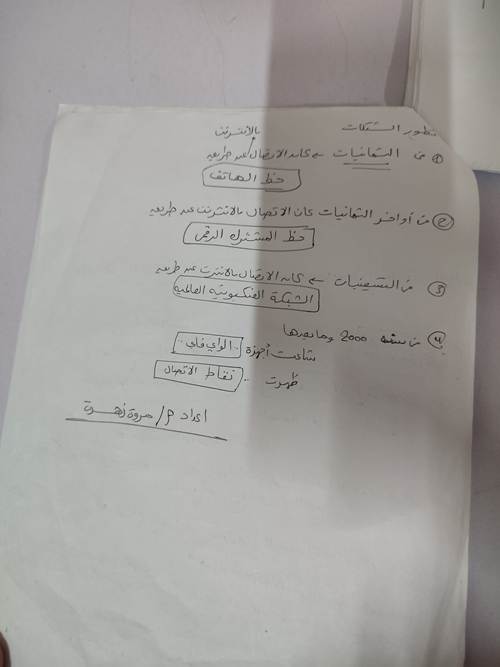 تطور الشبكات
① فى الثمانيات كان الاتصال بالأنترنت عبر طريق
خط الهاتف
② فى أواخر الثمانيات كان الاتصال بالانترنت عبر طريق
خط المشترك الرقمى
③ فى التسعينيات كان الاتصال بالانترنت عبر طريق
الشبكة العنكبوتيه العالميه
④ فى سنه 2000 وما بعدها
شاعت أجهزة الواي فاي
ظهرت نقاط الاتصال
اعداد م/ مروة زهرة